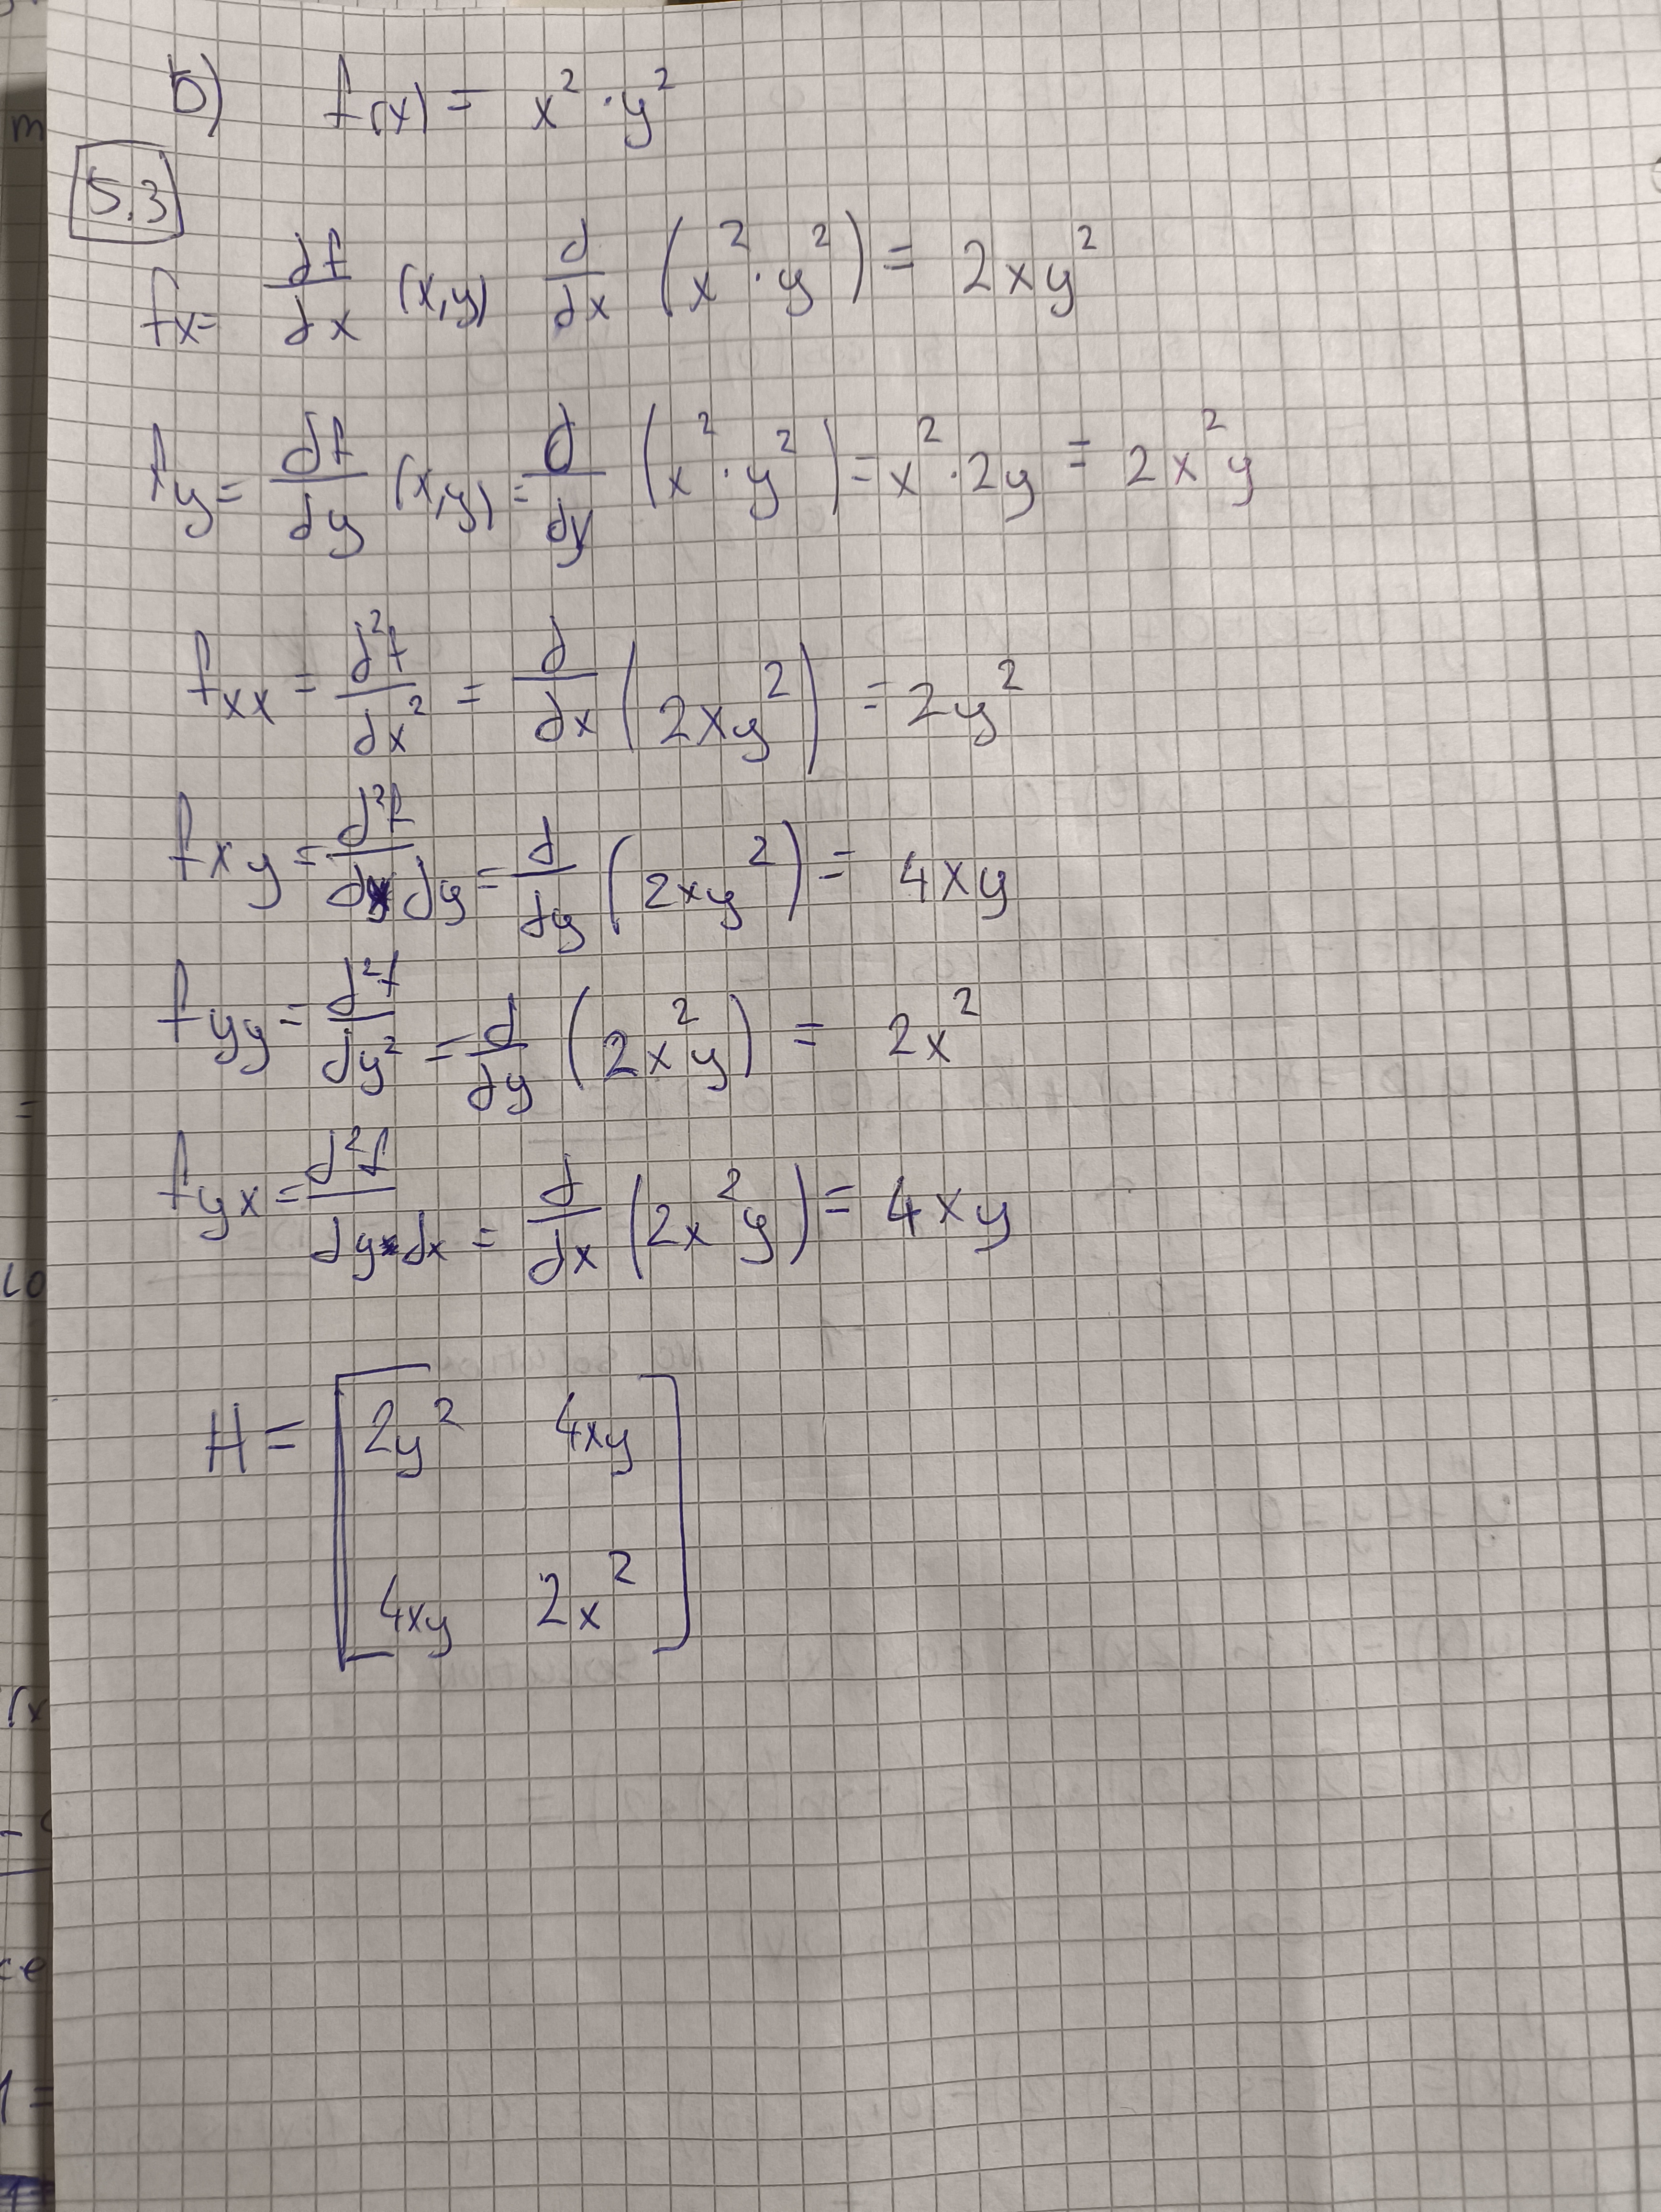 b) f(x) = x² · y²
5.3
fx = df/dx (x,y) d/dx (x² · y²) = 2xy²
fy = df/dy (x,y) = d/dy (x² · y²) = x² · 2y = 2x²y
fxx = d²f/dx² = d/dx (2xy²) = 2y²
fxy = d²f/dx dy = d/dy (2xy²) = 4xy
fyy = d²f/dy² = d/dy (2x²y) = 2x²
fyx = d²f/dy dx = d/dx (2x²y) = 4xy
H = [ 2y² 4xy
4xy 2x² ]